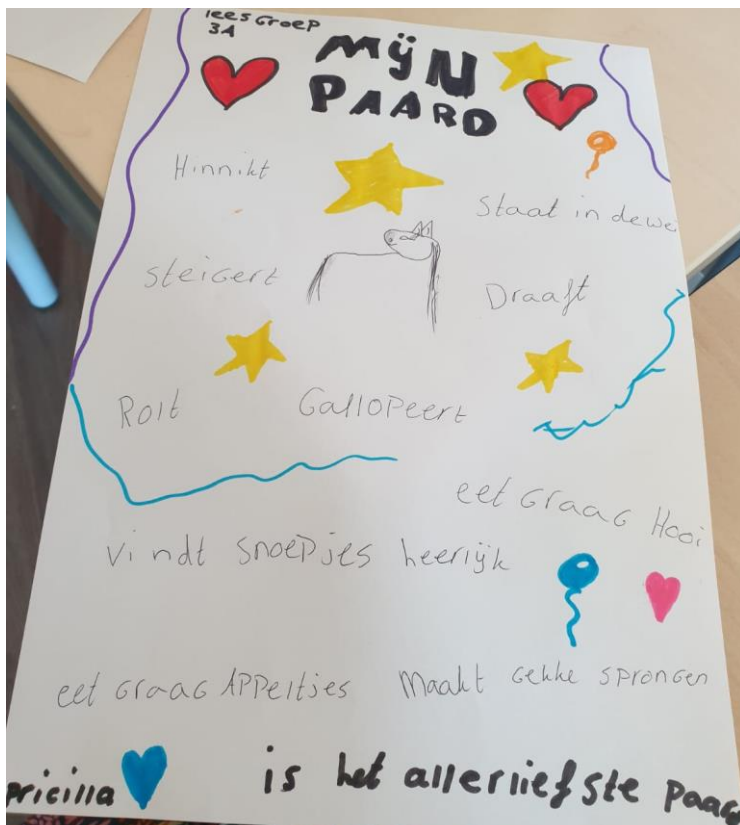 leesGroep
3A
MijN
PAARD
Hinnikt
Staat in de wei
Steigert
Draaft
Rolt
Gallopeert
eet Graag Hooi
Vindt snoepjes heerlijk
eet Graag APPeltjes
Maakt Gekke sprongen
pricilla is het allerliefste paard